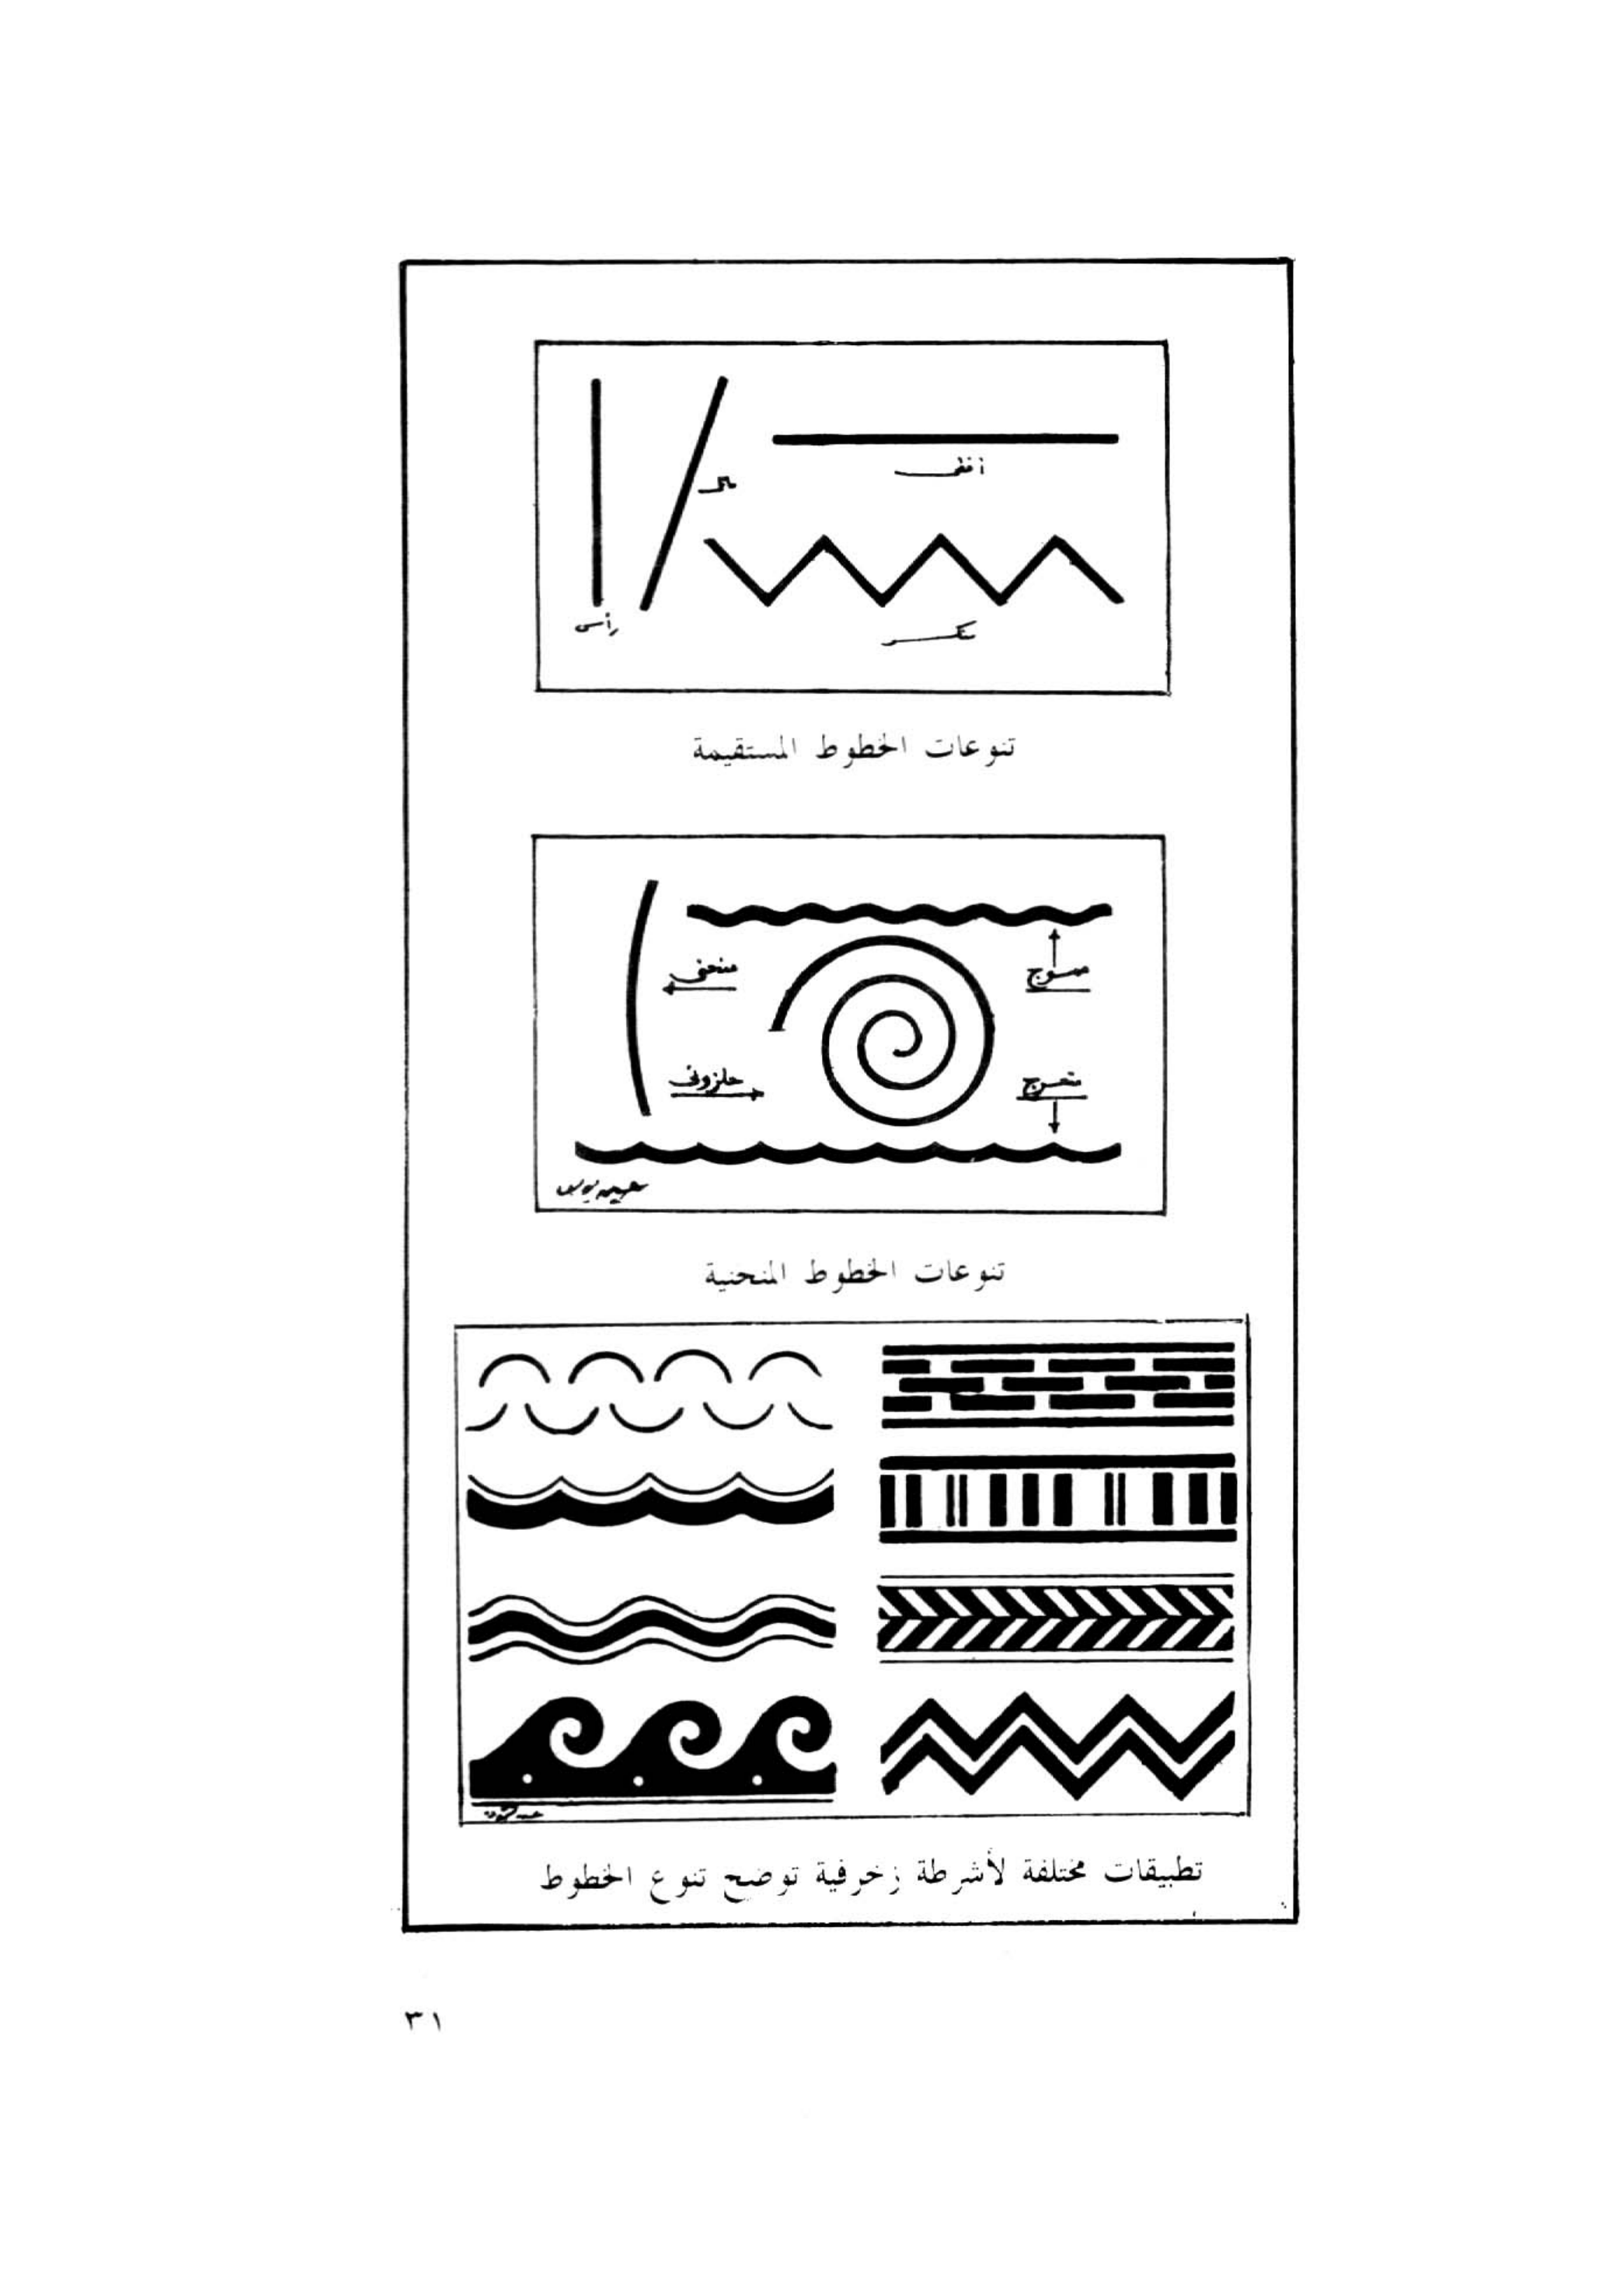 أفقى
مائل
رأسى
منكسر
تنوعات الخطوط المستقيمة
مموج
منحنى
متعرج
حلزونى
تنوعات الخطوط المنحنية
تطبيقات مختلفة لأشرطة زخرفية توضح تنوع الخطوط
٣١